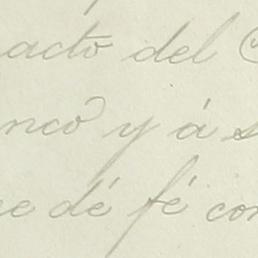 acto del
nco y á s
e dé fé con